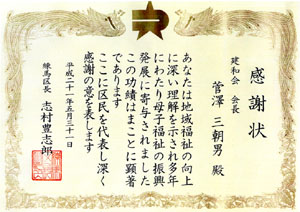 感謝状
建和会 会長
菅澤 三朝男 殿
あなたは地域福祉の向上
に深い理解を示され多年
にわたり母子福祉の振興
発展に寄与されました
この功績はまことに顕著
であります
ここに区民を代表し深く
感謝の意を表します
平成二十一年五月三十一日
練馬区長 志村豊志郎